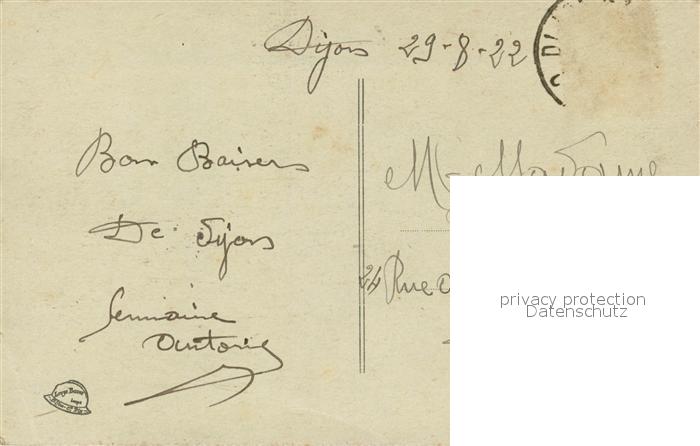 Dijon 29-8-22
Bons Baisers
De Dijon
Germaine
Antoine
M. Madame
24 Rue
privacy protection
Datenschutz